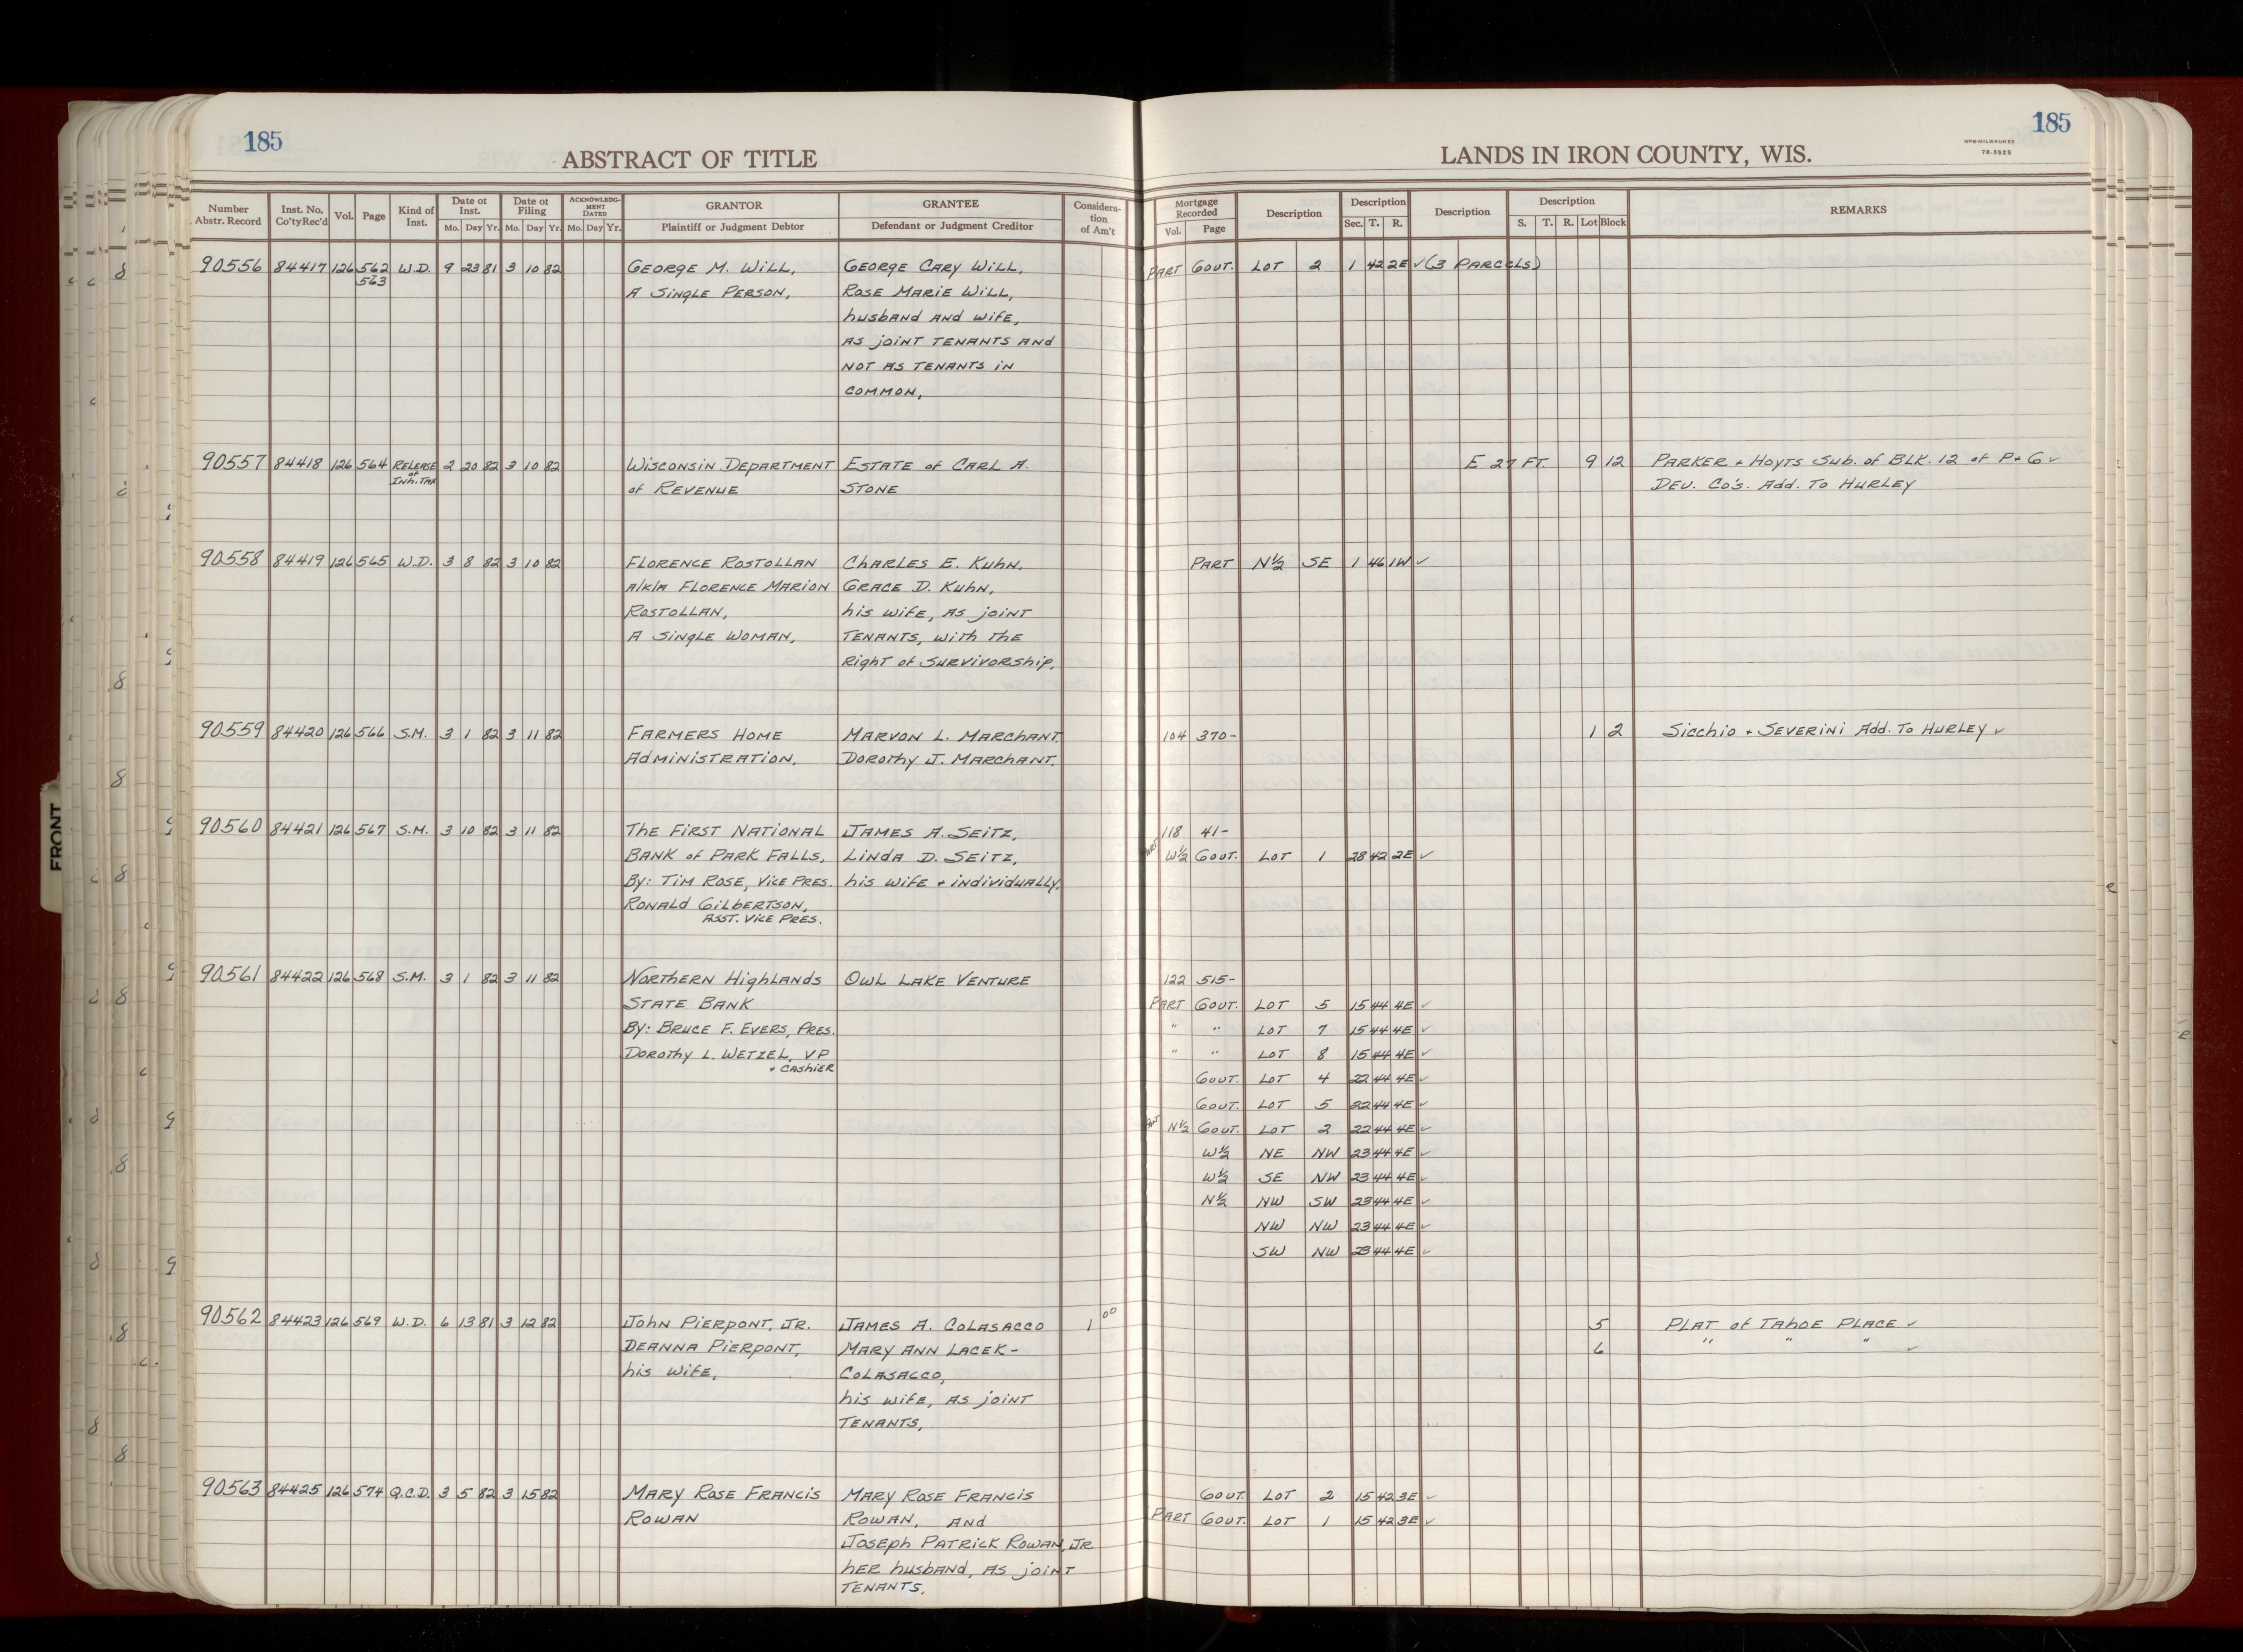 185
ABSTRACT OF TITLE
LANDS IN IRON COUNTY, WIS.
WPB-MILWAUKEE
78-3525
185
Number Abstr. Record
Inst. No. Co'ty Rec'd
Vol.
Page
Kind of Inst.
Date of Inst. Mo. Day Yr.
Date of Filing Mo. Day Yr.
ACKNOWLEDGMENT DATED Mo. Day Yr.
GRANTOR Plaintiff or Judgment Debtor
GRANTEE Defendant or Judgment Creditor
Consideration of Am't
Mortgage Recorded Vol. Page
Description
Description Sec. T. R.
Description
Description S. T. R. Lot Block
REMARKS
90556 84417 126 562 W.D. 9 23 81 3 10 82 GEORGE M. WILL, GEORGE CARY WILL, PART GOUT. LOT 2 1 42 2E ✓ (3 PARCELS)
563
A SINGLE PERSON, ROSE MARIE WILL,
husband AND wife,
AS joint TENANTS AND
NOT AS TENANTS in
COMMON,
90557 84418 126 564 RELEASE of INh. TAX 2 20 82 3 10 82 WISCONSIN DEPARTMENT ESTATE of CARL A. E 27 FT. 9 12 PARKER + HOYTS Sub. of BLK. 12 of P+G ✓
of REVENUE STONE DEV. CO'S. Add. TO HURLEY
90558 84419 126 565 W.D. 3 8 82 3 10 82 FLORENCE ROSTOLLAN CHARLES E. KUHN, PART N½ SE 1 46 1W ✓
A/K/A FLORENCE MARION GRACE D. KUHN,
ROSTOLLAN, his wife, AS joint
A SINGLE WOMAN, TENANTS, with the
Right of SURVIVORSHIP.
90559 84420 126 566 S.M. 3 1 82 3 11 82 FARMERS HOME MARVON L. MARCHANT. 104 370- 1 2 Sicchio + SEVERINI Add. TO HURLEY ✓
ADMINISTRATION, DOROTHY J. MARCHANT.
90560 84421 126 567 S.M. 3 10 82 3 11 82 THE FIRST NATIONAL JAMES A. SEITZ, 118 41-
BANK of PARK FALLS, LINDA D. SEITZ, PART W½ GOUT. LOT 1 28 42 2E ✓
By: TIM ROSE, VICE PRES. his wife + individually.
RONALD GILBERTSON,
ASST. VICE PRES.
90561 84422 126 568 S.M. 3 1 82 3 11 82 NORTHERN HIGHLANDS OWL LAKE VENTURE 122 515-
STATE BANK PART GOUT. LOT 5 15 44 4E ✓
By: BRUCE F. EVERS, PRES. " " LOT 7 15 44 4E ✓
DOROTHY L. WETZEL, VP " " LOT 8 15 44 4E ✓
+ CASHIER
GOUT. LOT 4 22 44 4E ✓
GOUT. LOT 5 22 44 4E ✓
PART N½ GOUT. LOT 2 22 44 4E ✓
W½ NE NW 23 44 4E ✓
W½ SE NW 23 44 4E ✓
N½ NW SW 23 44 4E ✓
NW NW 23 44 4E ✓
SW NW 23 44 4E ✓
90562 84423 126 569 W.D. 6 13 81 3 12 82 JOHN PIERPONT, JR. JAMES A. COLASACCO 1 00 5 PLAT of TAHOE PLACE ✓
DEANNA PIERPONT, MARY ANN LACEK- 6 " " " ✓
his wife, COLASACCO,
his wife, AS joint
TENANTS,
90563 84425 126 574 Q.C.D. 3 5 82 3 15 82 MARY ROSE FRANCIS MARY ROSE FRANCIS GOUT. LOT 2 15 42 3E ✓
ROWAN ROWAN, AND PART GOUT. LOT 1 15 42 3E ✓
JOSEPH PATRICK ROWAN, JR
HER husband, AS joint
TENANTS,
FRONT